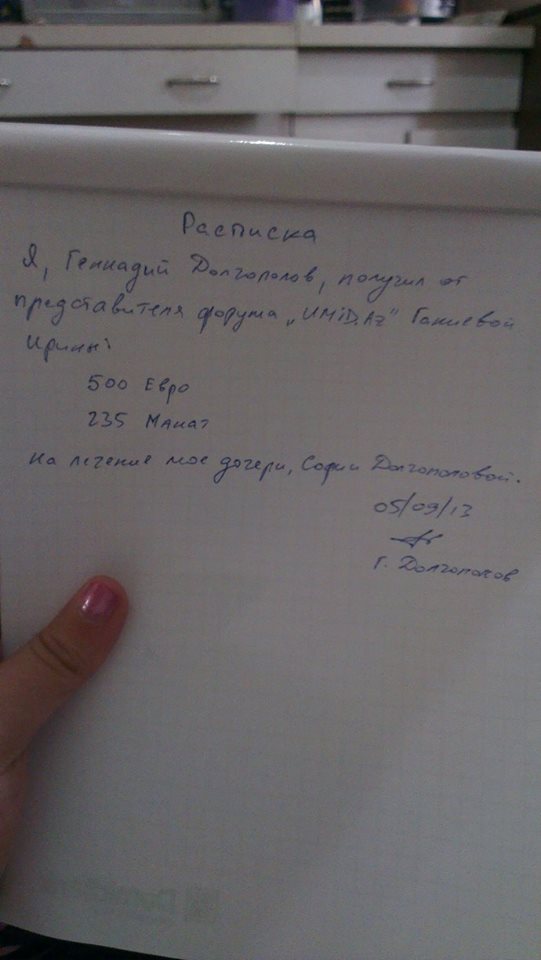 Расписка
Я, Геннадий Долгополов, получил от
представителя форума „UMiD.Az" Ганиевой
Ирины:
500 Евро
235 Манат
на лечение мое дочери, Софии Долгополовой.
05/09/13
Г. Долгополов